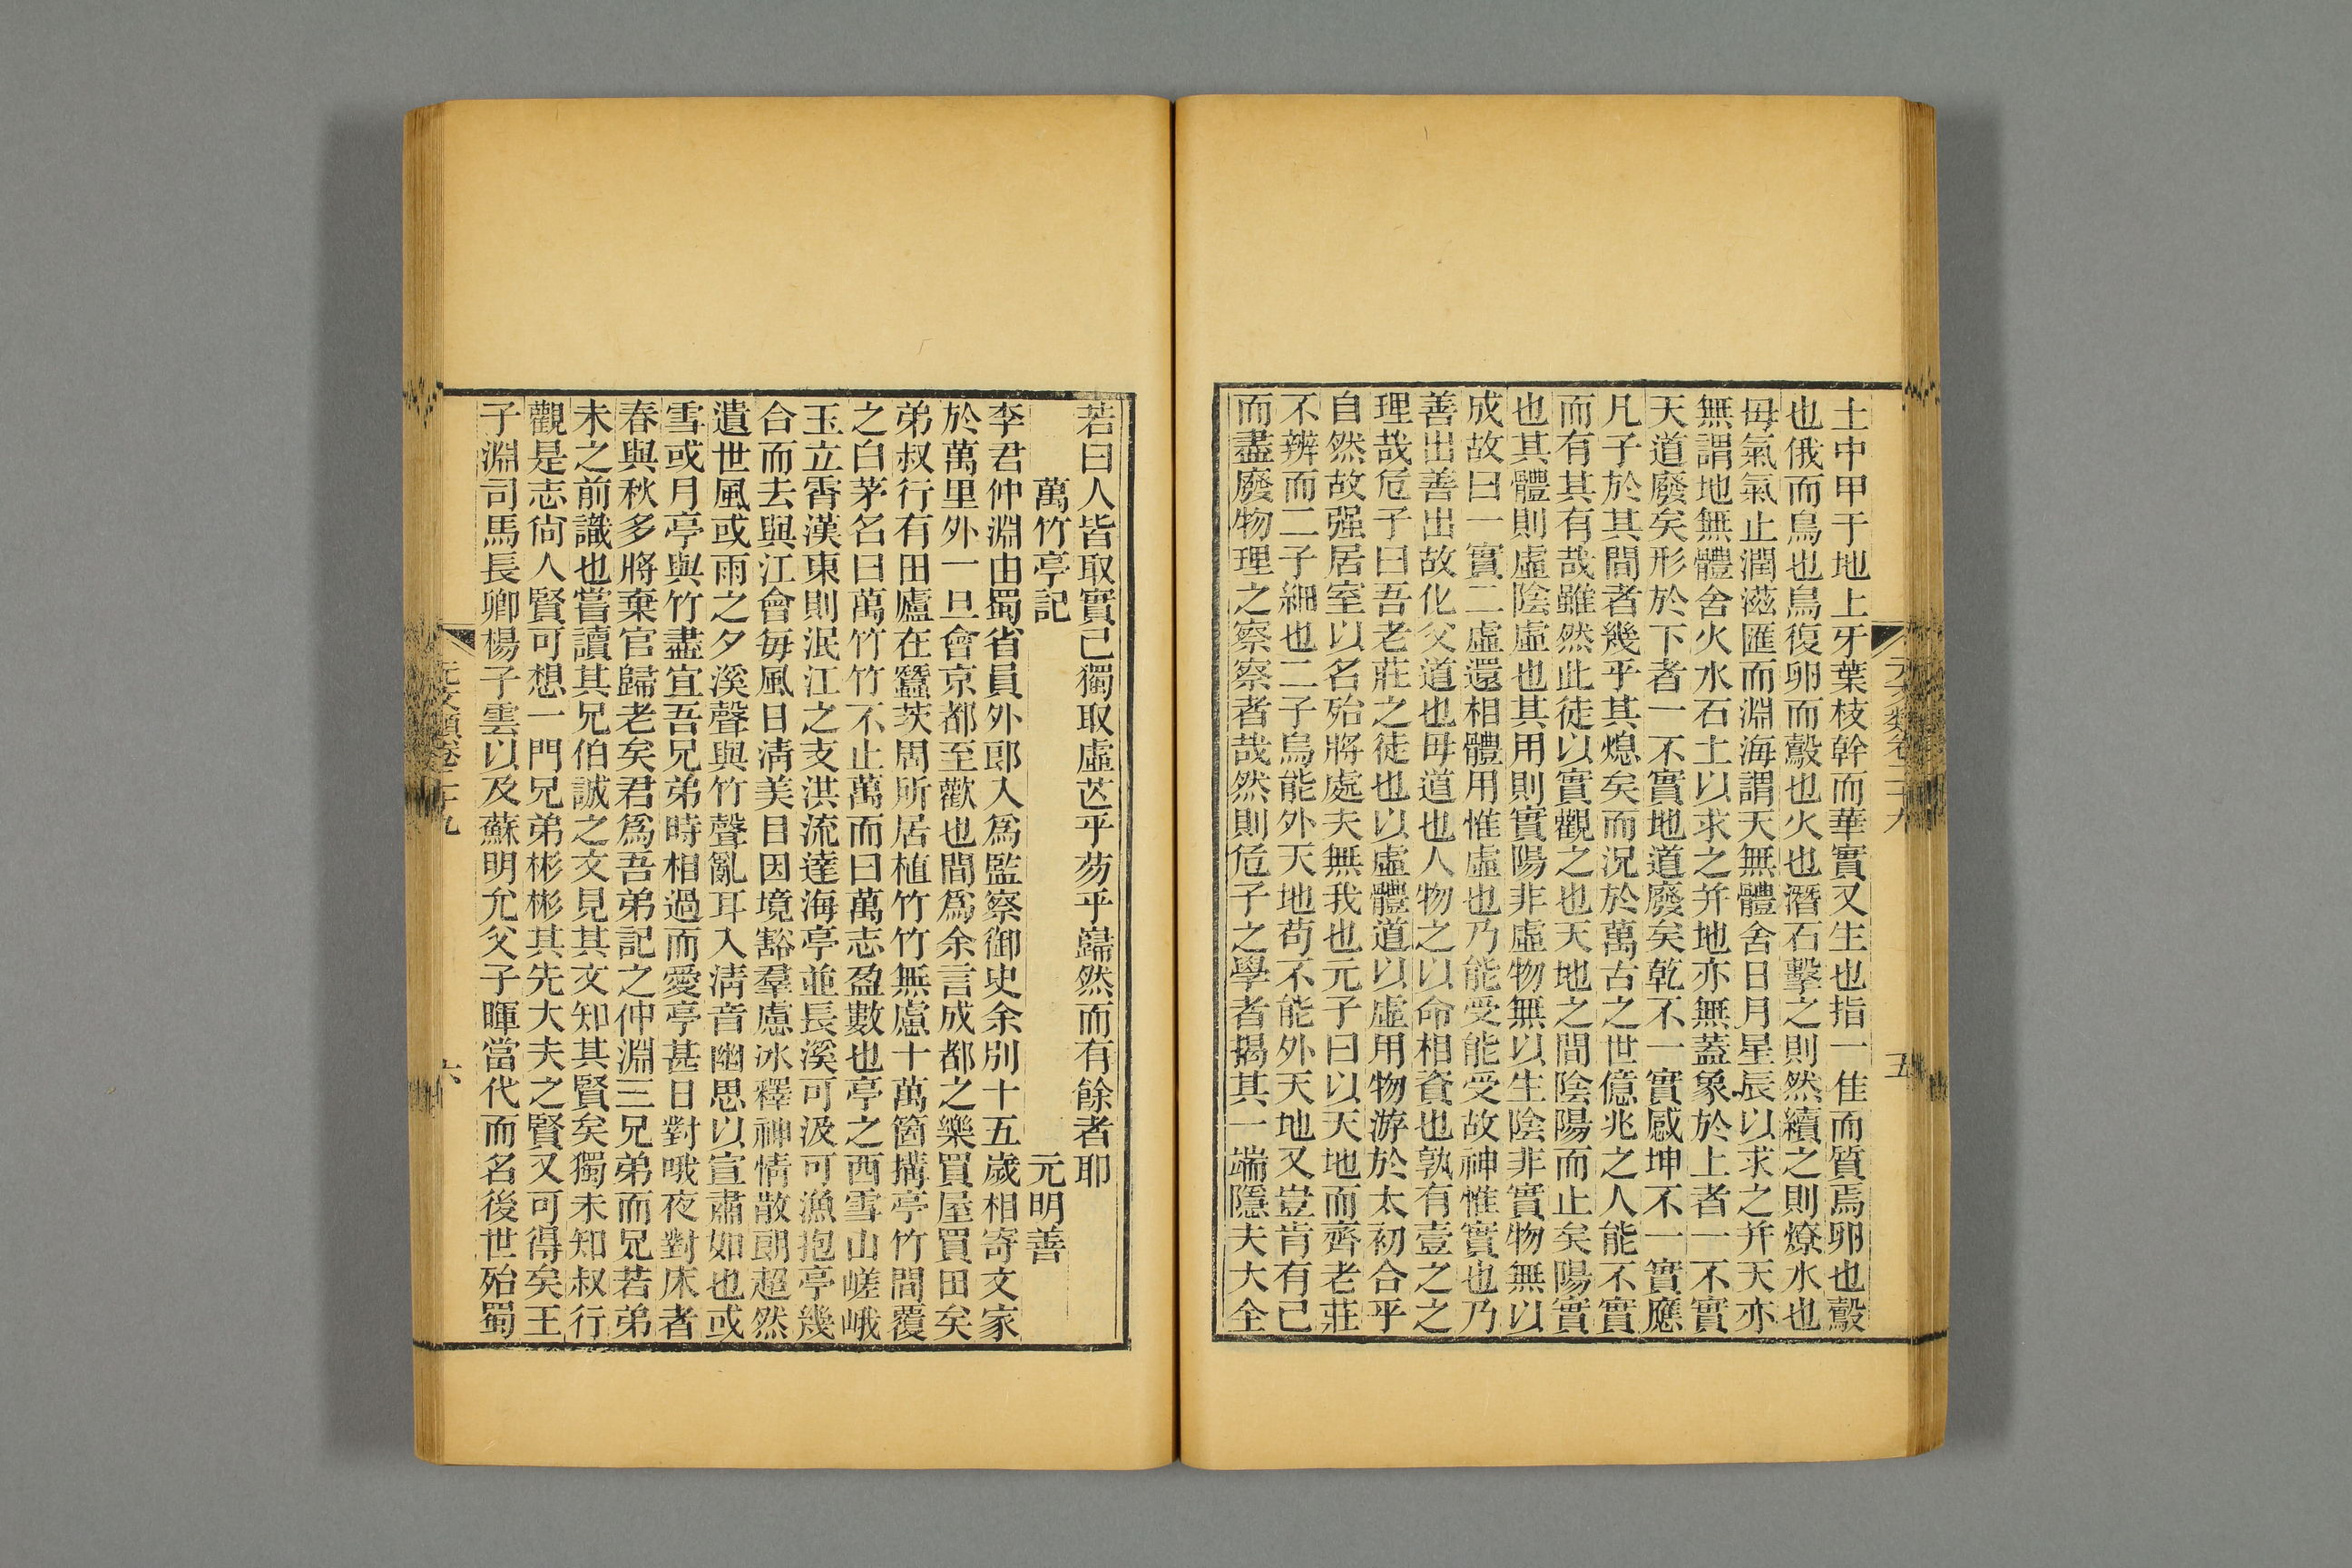 土中甲于地上牙葉枝幹而華實又生也指一隹而質焉卵也鷇
也俄而鳥也鳥復卵而鷇也火也潛石擊之則然續之則燎水也
毋氣氣止潤滋匯而淵海謂天無體舍日月星辰以求之并天亦
無謂地無體舍火水石土以求之并地亦無蓋象於上者一不實
天道廢矣形於下者一不實地道廢矣乾不一實感坤不一實應
凡子於其間者幾乎其熄矣而況於萬古之世億兆之人能不實
而有其有哉雖然此徒以實觀之也天地之間陰陽而止矣陽實
也其體則虛陰虛也其用則實陽非虛物無以生陰非實物無以
成故曰一實二虛還相體用惟虛也乃能受能受故神惟實也乃
善出善出故化父道也毋道也人物之以命相資也孰有壹之之
理哉危子曰吾老莊之徒也以虛體道以虛用物游於太初合乎
自然故强居室以名殆將處夫無我也元子曰以天地而齊老莊
不辨而二子細也二子烏能外天地苟不能外天地又豈肯有己
而盡廢物理之察察者哉然則危子之學者揭其一端隱夫大全
元文類卷二十九
五
若曰人皆取實己獨取虛芒乎芴乎巋然而有餘者耶
萬竹亭記　元明善
李君仲淵由蜀省員外郎入爲監察御史余別十五歲相寄文家
於萬里外一旦會京都至歡也間爲余言成都之樂買屋買田矣
弟叔行有田廬在蠶茨周所居植竹竹無慮十萬箇搆亭竹間覆
之白茅名曰萬竹竹不止萬而曰萬志盈數也亭之西雪山嵯峨
玉立霄漢東則泯江之支洪流達海亭並長溪可汲可漁抱亭幾
合而去與江會每風日淸美目因境豁羣慮冰釋神情散朗超然
遺世風或雨之夕溪聲與竹聲亂耳入淸音幽思以宣肅如也或
雪或月亭與竹盡宜吾兄弟時相過而愛亭甚日對哦夜對床者
春與秋多將棄官歸老矣君爲吾弟記之仲淵三兄弟而兄若弟
未之前識也嘗讀其兄伯誠之文見其文知其賢矣獨未知叔行
觀是志尙人賢可想一門兄弟彬彬其先大夫之賢又可得矣王
子淵司馬長卿楊子雲以及蘇明允父子暉當代而名後世殆蜀
元文類卷二十九
六